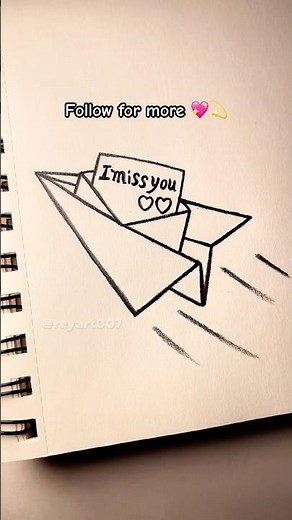 Follow for more 💖💫
I miss you
♡♡
ereyart007